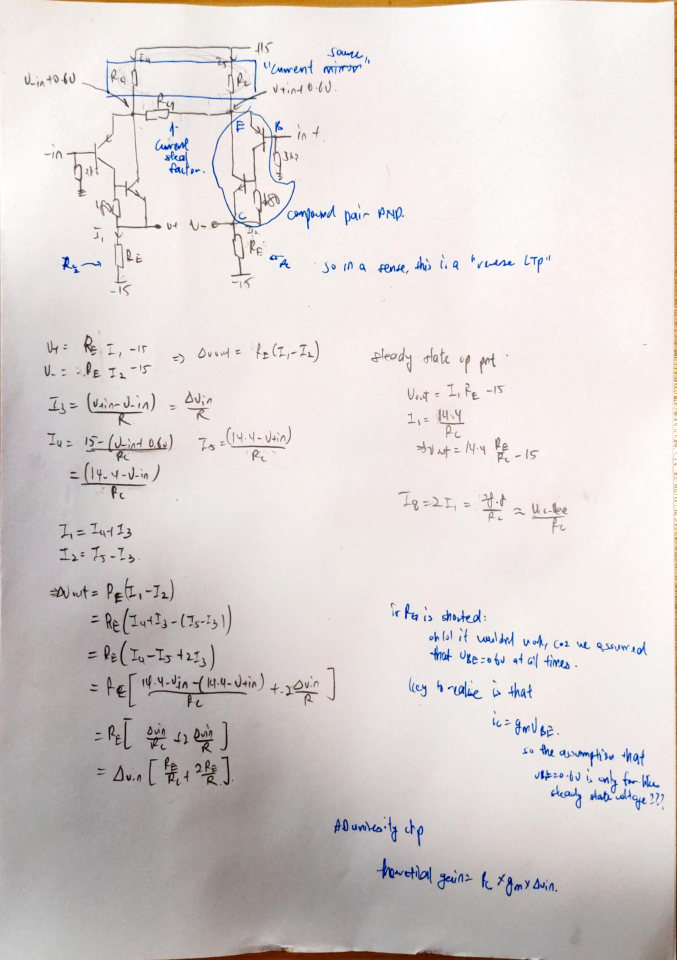 +15
source
"current mirror"
I4
I5
R4
Rc
V-in+0.6V
V+in+0.6V.
E
B
in +
-in
current
steal
factor.
3k2
compound pair PNP.
C
I1
V+
V-
I2
RE
RE
-15
-15
so in a sense, this is a "reverse LTP"
V+ = RE I1 -15
V- = RE I2 -15
=> ΔVout = RE(I1-I2)
I3 = (V+in-V-in)/R = ΔVin/R
I4 = 15-(V-in+0.6V)/Rc
I5 = (14.4-V+in)/Rc
= (14.4-V-in)/Rc
I1 = I4+I3
I2 = I5-I3.
=> ΔVout = RE(I1-I2)
= RE(I4+I3-(I5-I3))
= RE(I4-I5+2I3)
= RE[14.4-V-in-(14.4-V+in)/Rc + 2ΔVin/R]
= RE[ΔVin/Rc + 2ΔVin/R]
= ΔVin[RE/Rc + 2RE/R].
steady state op pnt.
Vout = I1 RE -15
I1 = 14.4/Rc
= 14.4 RE/Rc -15
is shorted:
it wouldn't work, coz we assumed
that VBE=0.6V at all times.
key to realise is that
ic=gmVBE.
so the assumption that
VBE=0.6V is only for the
steady state voltage???
AD university LTP
theoretical gain= Rc × gm × ΔVin.